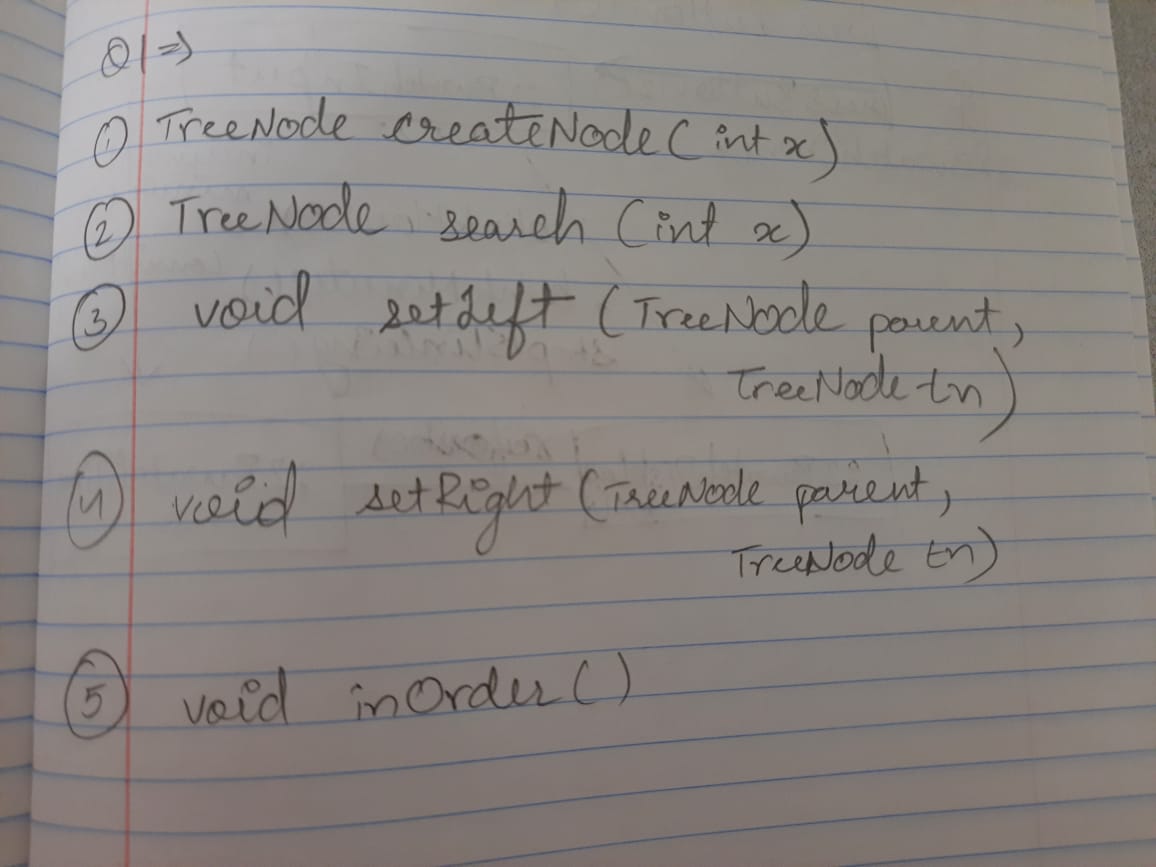 Q1⇒
① TreeNode createNode(int x)
② TreeNode search(int x)
③ void setLeft(TreeNode parent,
TreeNode tn)
④ void setRight(TreeNode parent,
TreeNode tn)
⑤ void inOrder()